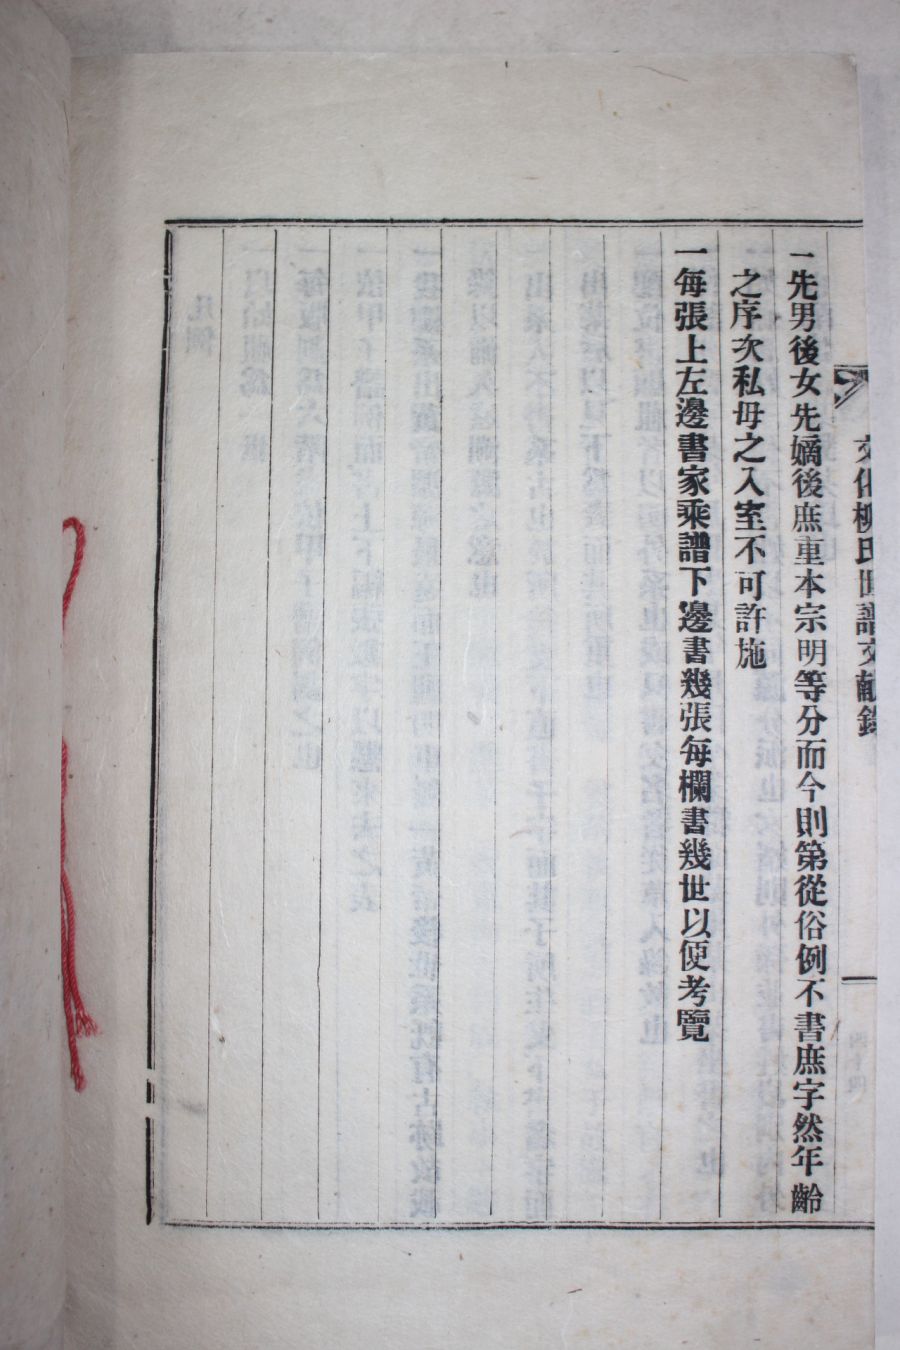 文化柳氏世譜文獻錄
一先男後女先嫡後庶重本宗明等分而今則第從俗例不書庶字然年齡
之序次私毋之入室不可許施
一每張上左邊書家乘譜下邊書幾張每欄書幾世以便考覽